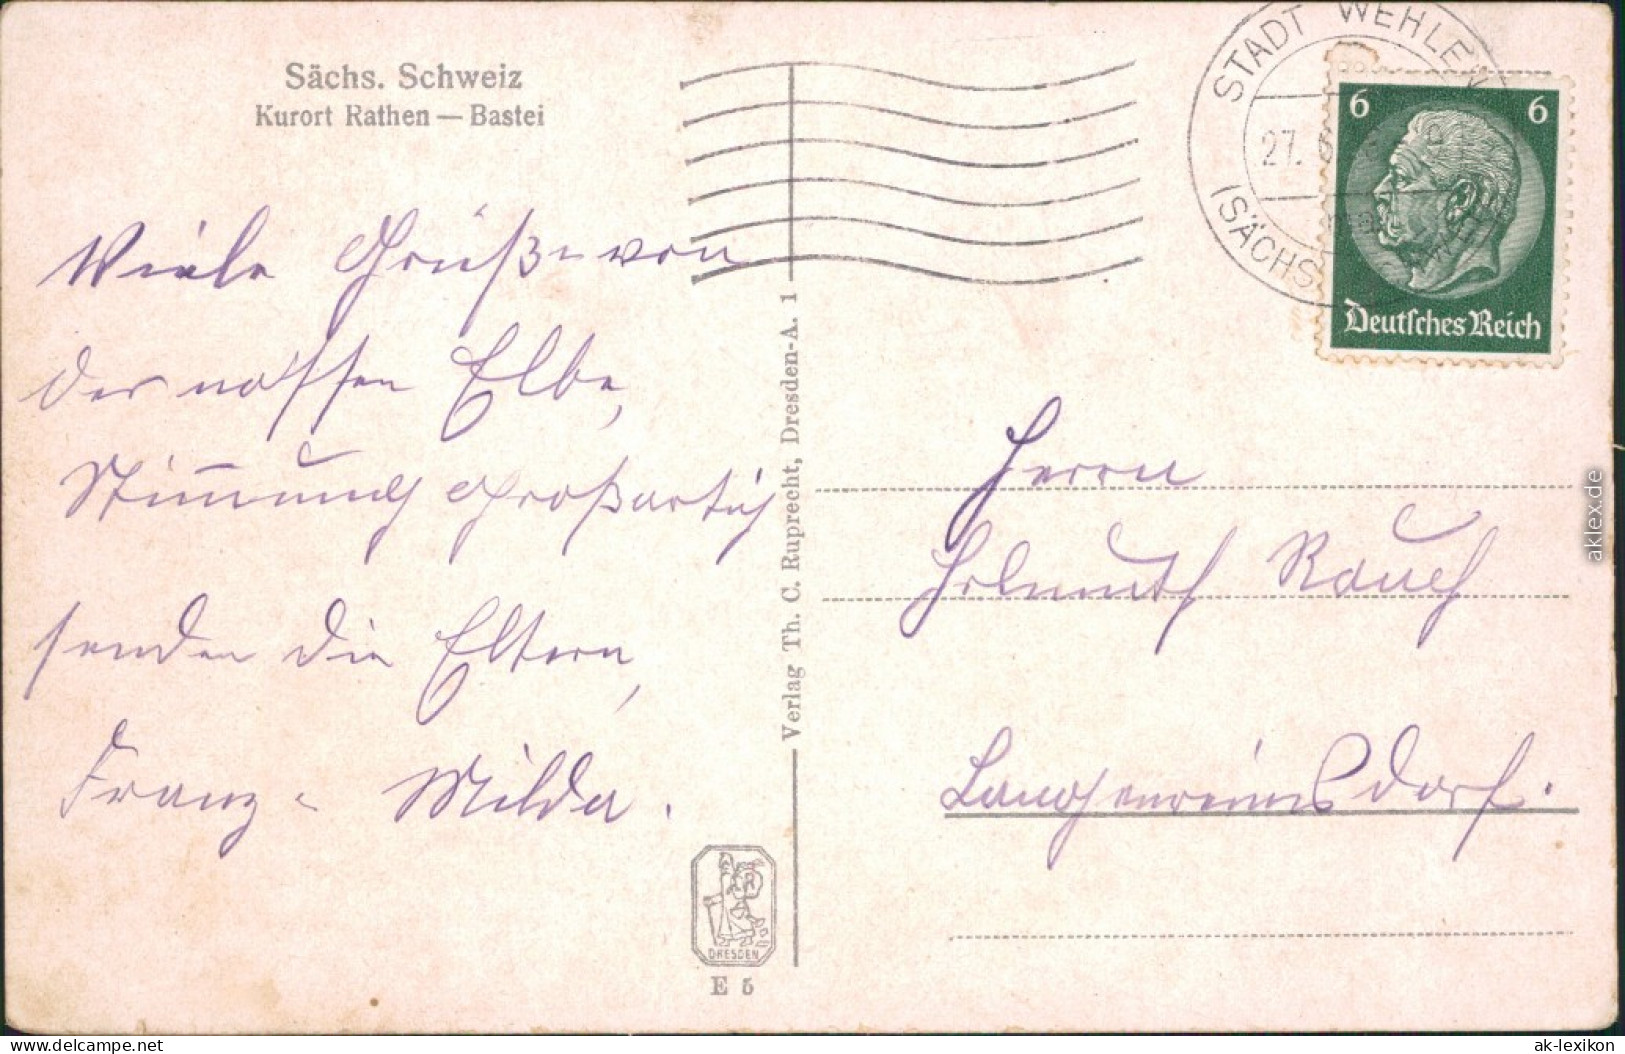 Sächs. Schweiz
Kurort Rathen — Bastei
Viele Grüße von
der nassen Elbe,
Stimmung großartig
senden die Eltern,
Franz u. Milda.
Verlag Th. C. Ruprecht, Dresden-A. 1
DRESDEN
E 5
STADT WEHLEN
(SÄCHS
27.
6 6
Deutsches Reich
Herrn
Helmuth Rauch
Langenreinsdorf.
aklex.de
delcampe.net
ak-lexikon